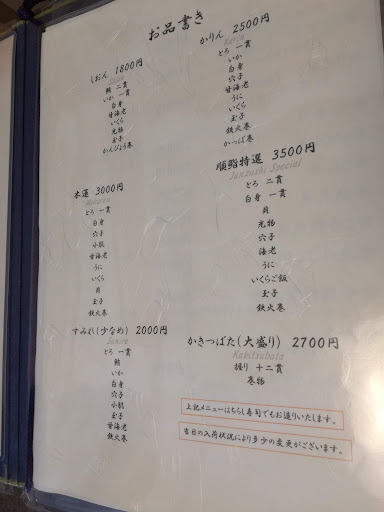 お品書き
しおん 1800円
Shion
鮪 二貫
いか 一貫
白身
甘海老
いくら
光物
玉子
かんぴょう巻
かりん 2500円
Karin
とろ 一貫
いか
白身
穴子
甘海老
うに
いくら
玉子
鉄火巻
かっぱ巻
木蓮 3000円
Mokuren
とろ 一貫
白身
穴子
小肌
甘海老
いくら
うに
貝
玉子
鉄火巻
順鮨特選 3500円
Junzushi Special
とろ 二貫
白身 一貫
貝
光物
穴子
海老
うに
いくらご飯
玉子
鉄火巻
すみれ(少なめ) 2000円
Sumire
とろ 一貫
鮪
いか
白身
穴子
小肌
玉子
甘海老
鉄火巻
かきつばた(大盛り) 2700円
Kakitsubata
握り 十二貫
巻物
上記メニューはちらし寿司でもお造りいたします。
当日の入荷状況により多少の変更がございます。